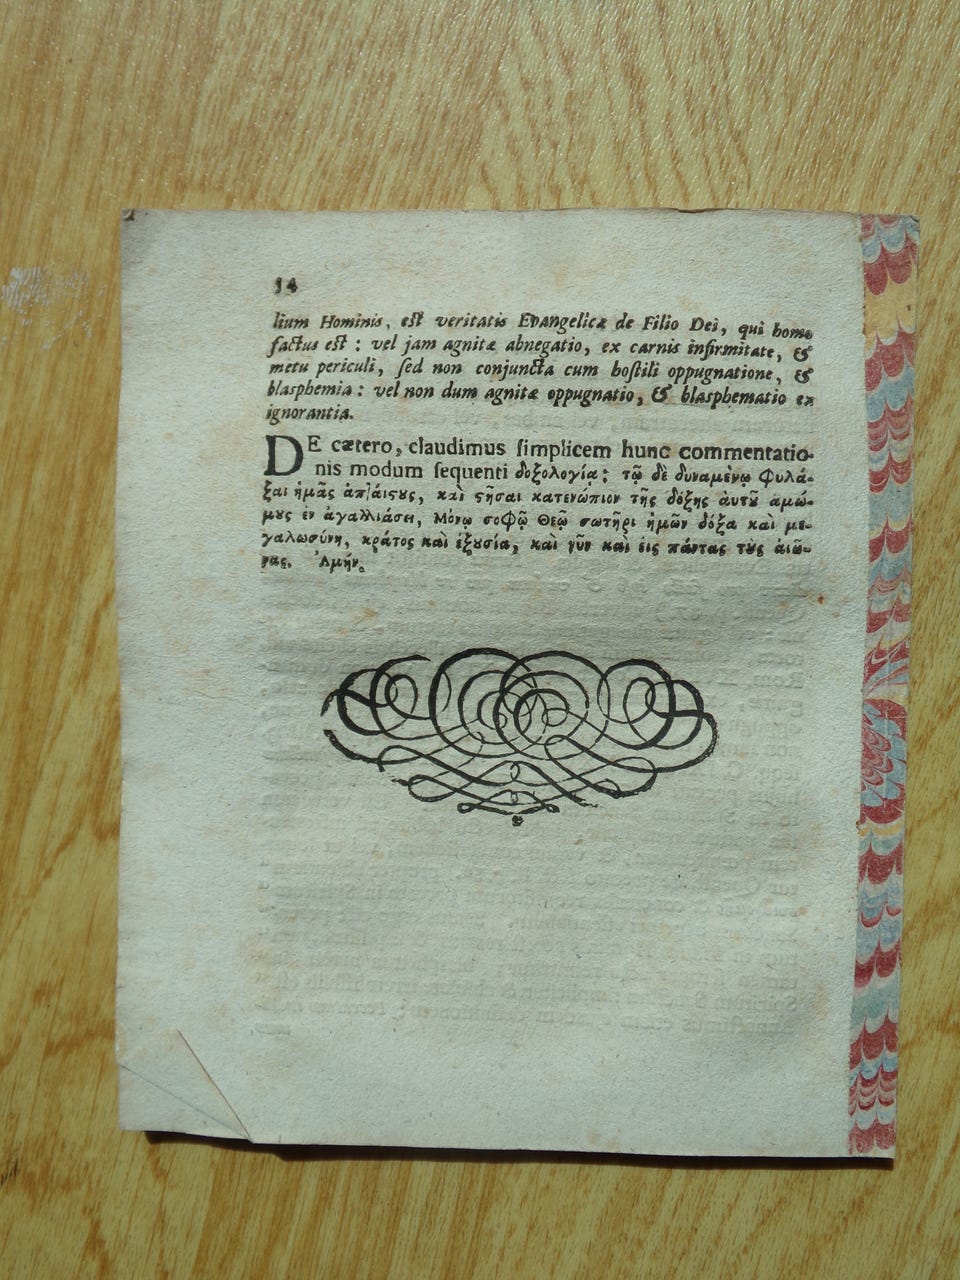 14
lium Hominis, est veritatis Evangelicæ de Filio Dei, qui homo
factus est : vel jam agnitæ abnegatio, ex carnis infirmitate, &
metu periculi, sed non conjuncta cum hostili oppugnatione, &
blasphemia : vel non dum agnitæ oppugnatio, & blasphematio ex
ignorantia.
DE cætero, claudimus simplicem hunc commentatio-
nis modum sequenti δοξολογία: τῷ δὲ δυναμένῳ Φυλά-
ξαι ἡμᾶς ἀπ]αίςους, καὶ ςῆσαι κατενώπιον τῆς δόξης ἀυτοῦ ἀμώ-
μους ἐν ἀγαλλιάσει, Μόνῳ σοφῷ Θεῷ σωτῆρι ἡμῶν δόξα καὶ με-
γαλωσύνη, κράτος καὶ ἐξουσία, καὶ νῦν καὶ εἰς πάντας τοὺς αἰῶ-
νας. Ἀμήν.